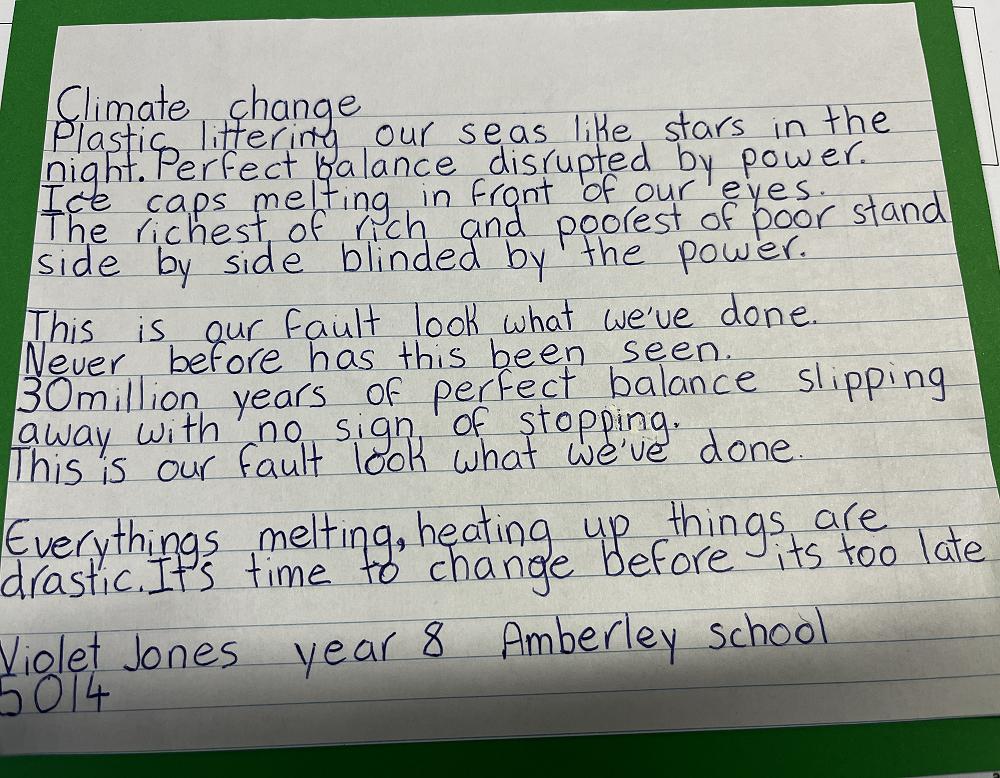 Climate change
Plastic littering our seas like stars in the
night. Perfect balance disrupted by power.
Ice caps melting in front of our eyes.
The richest of rich and poorest of poor stand
side by side blinded by the power.
This is our fault look what we've done.
Never before has this been seen.
30million years of perfect balance slipping
away with no sign of stopping.
This is our fault look what we've done.
Everythings melting, heating up things are
drastic. It's time to change before its too late
Violet Jones year 8 Amberley school
5014